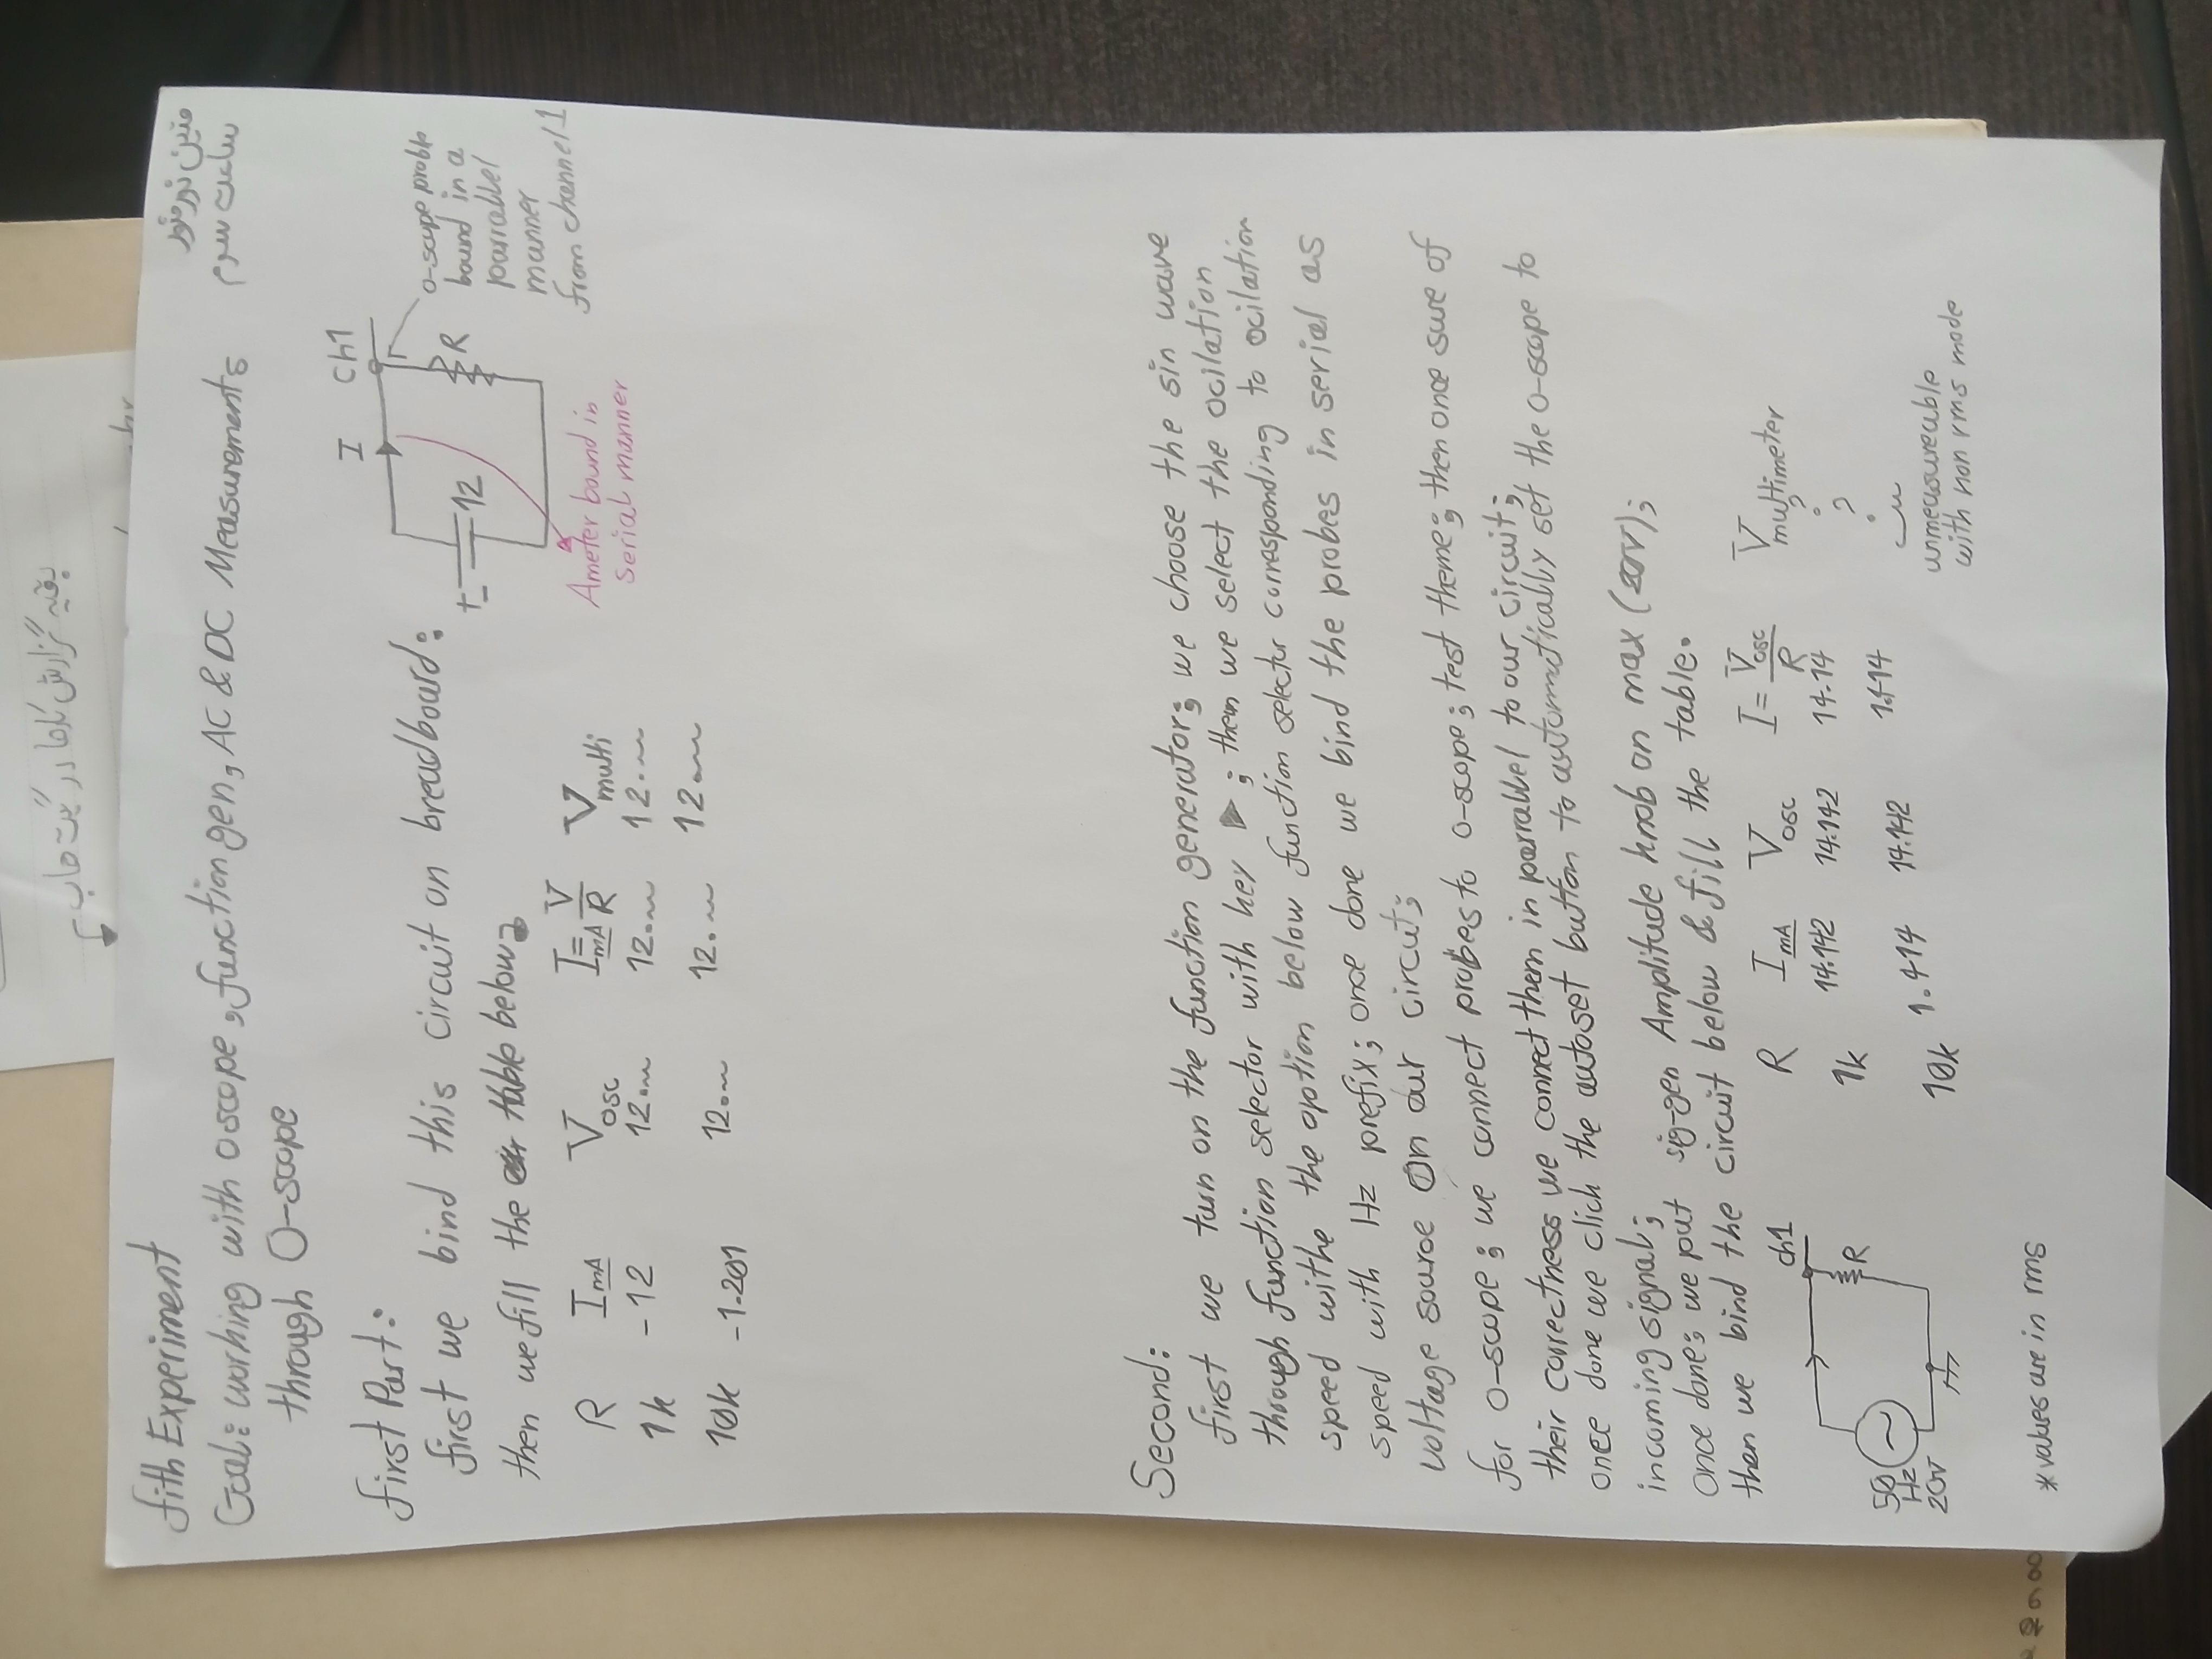 بقیه گزارش کارها در گیت هاب
fith Experiment
متین نورمنور
ساعت سوم
Goal: working with oscope, function gen, AC & DC Measurements
through O-scope
first Part:
first we bind this circuit on breadboard:
then we fill the table below
I Ch1
+ - 12 R
o-scope proble
bound in a
parrallel
manner
from channel 1
Ameter bound in
Serial manner
R I mA V osc I mA = V/R V multi
1k -12 12. 12. 12.
10k -1.201 12. 12. 12.
Second:
first we turn on the function generator; we choose the sin wave
through function selector with key ▶; then we select the ocilation
speed withe the option below function selector corresponding to ocilation
speed with Hz prefix; once done we bind the probes in serial as
voltage source On our circut;
for o-scope; we connect probes to o-scope; test theme; then once sure of
their correctness we connect them in parrallel to our circuit;
once done we click the autoset button to automatically set the o-scope to
incoming signal;
once done; we put sig-gen Amplitude knob on max (20V);
then we bind the circuit below & fill the table.
ch1
R
50
Hz
20v
R I mA V osc I = Vosc/R V multimeter
1k 14.142 14.142 14.14 ?
10k 1.414 14.142 1.414 ?
unmeasureable
with non rms mode
* values are in rms